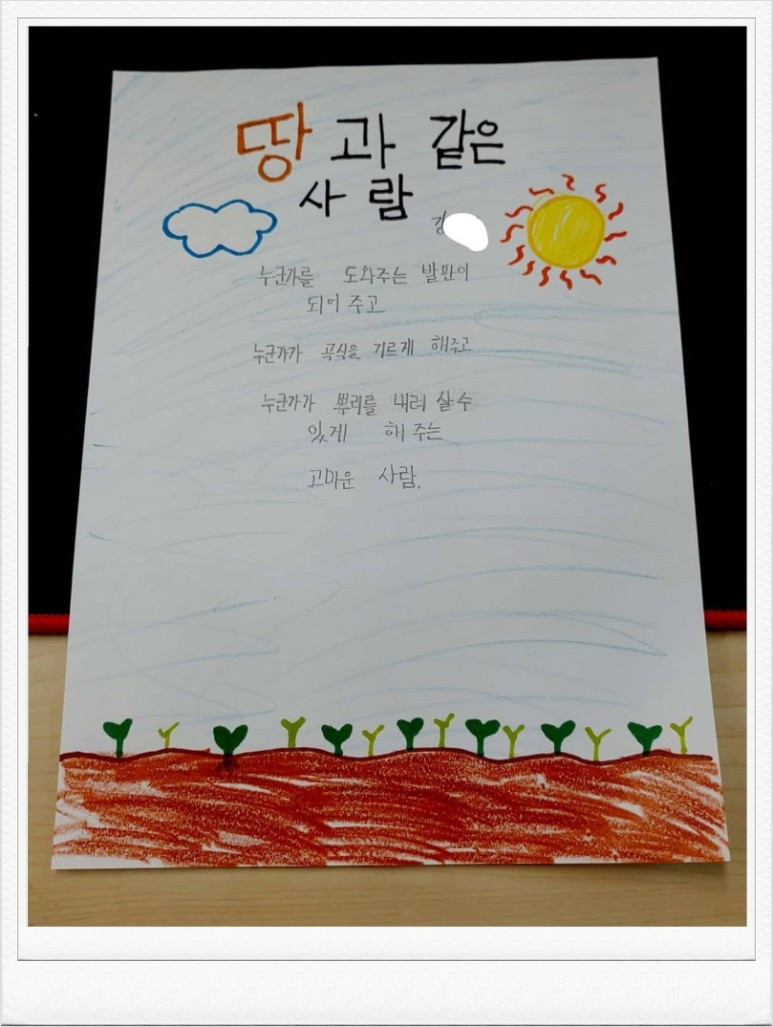 땅과 같은
사람
강
누군가를 도와주는 발판이
되어 주고
누군가가 곡식을 기르게 해주고
누군가가 뿌리를 내려 살 수
있게 해 주는
고마운 사람.